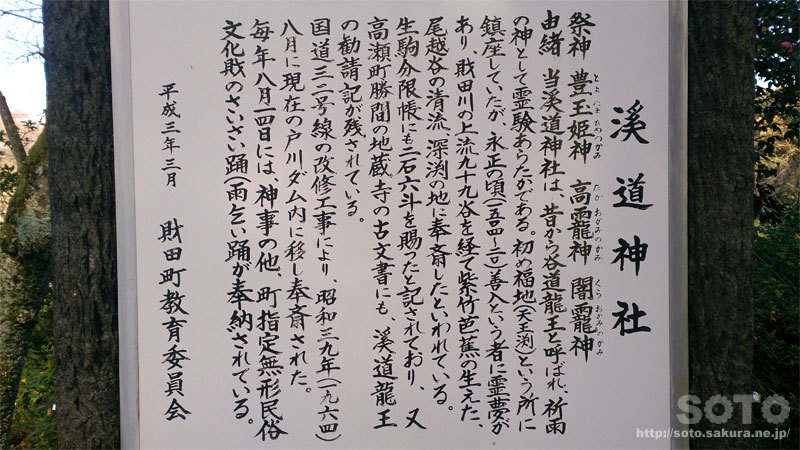 溪道神社
祭神 豊玉姫神 高龗神 闇龗神
とよ たま ひめのかみ たか おがみのかみ くら おがみのかみ
由緒 当溪道神社は、昔から谷道龍王と呼ばれ、祈雨
の神として霊験あらたかである。初め福地(天王渕)という所に
鎮座していたが、永正の頃(一五〇四~二一)善入という者に霊夢が
あり、財田川の上流九十九谷を経て紫竹芭蕉の生えた、
尾越谷の清流、深渕の地に奉斎したといわれている。
生駒分限帳にも二石六斗を賜ったと記されており、又
高瀬町勝間の地蔵寺の古文書にも、溪道龍王
の勧請記が残されている。
国道三二号線の改修工事により、昭和三九年(一九六四)
八月に現在の戸川ダム内に移し奉斎された。
毎年八月一四日には、神事の他、町指定無形民俗
文化財のさいさい踊(雨乞い踊)が奉納されている。
平成三年三月 財田町教育委員会
SOTO
http://soto.sakura.ne.jp